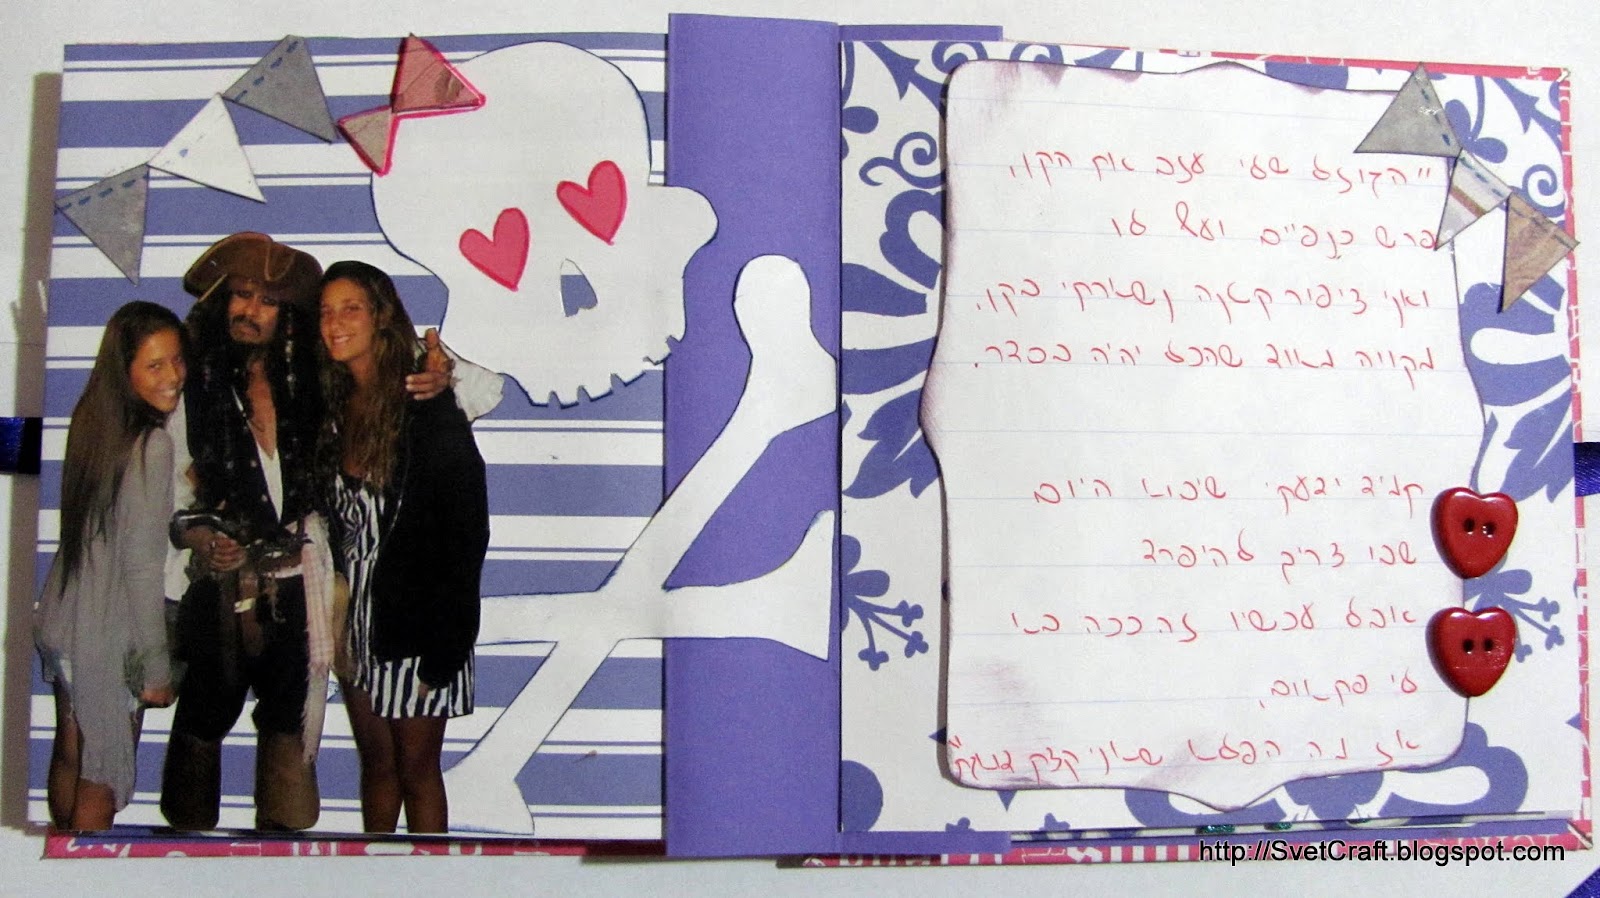 "הגוזל שלי עזב את הקן,
פרש כנפיים ועף לו
ואני ציפור קטנה נשארתי בקן,
מקווה מאוד שהכל יהיה בסדר.
תמיד ידעתי שיבוא היום
שבו צריך להיפרד
אבל עכשיו זה ככה בא
לי פתאום,
אז מה הפלא שאני קצת דואגת"
http://SvetCraft.blogspot.com